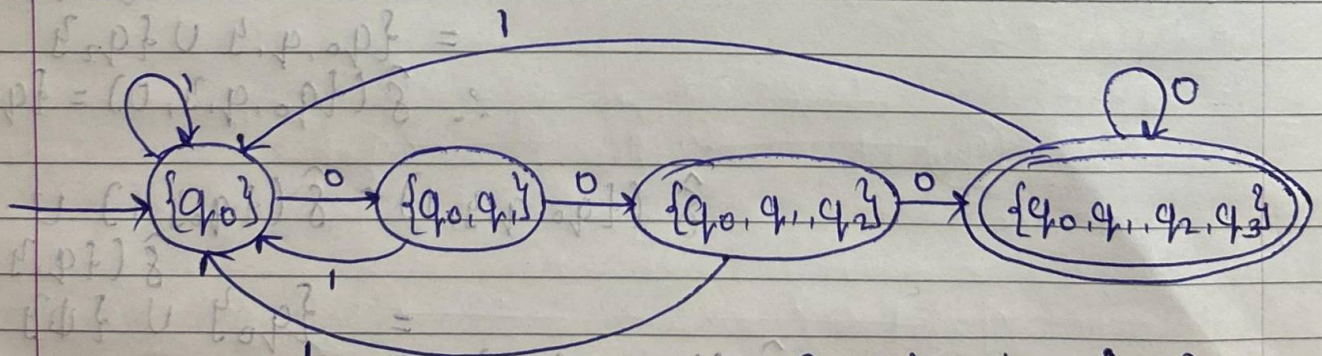 1
1 0
{q₀} 0 {q₀,q₁} 0 {q₀,q₁,q₂} 0 {q₀,q₁,q₂,q₃}
1
1